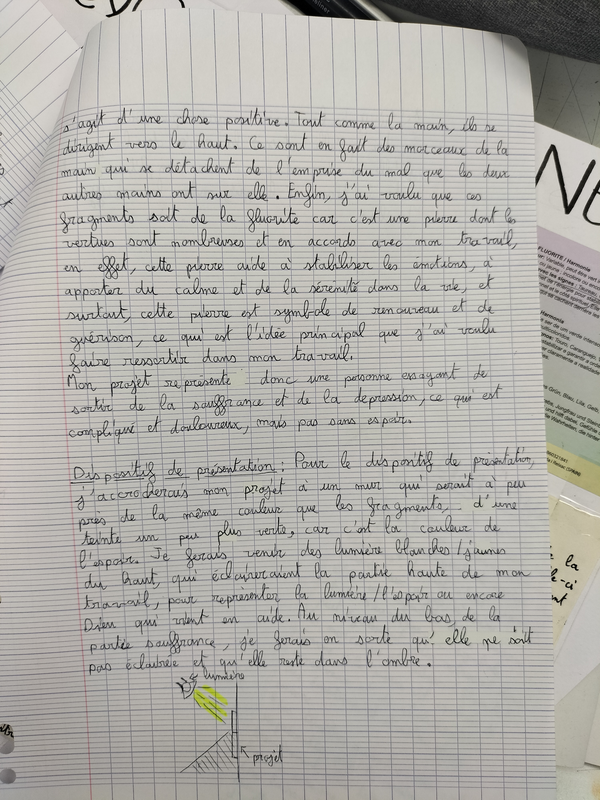 s'agit d'une chose positive. Tout comme la main, ils se
dirigent vers le haut. Ce sont en fait des morceaux de la
main qui se détachent de l'emprise du mal que les deux
autres mains ont sur elle. Enfin, j'ai voulu que ces
fragments soit de la fluorite car c'est une pierre dont les
vertues sont nombreuses et en accords avec mon travail,
en effet, cette pierre aide à stabiliser les émotions, à
apporter du calme et de la sérénité dans la vie, et
surtout, cette pierre est symbole de renouveau et de
guérison, ce qui est l'idée principal que j'ai voulu
faire ressortir dans mon travail.
Mon projet représente donc une personne essayant de
sortir de la souffrance et de la depression, ce qui est
compliqué et douloureux, mais pas sans espoir.
Dispositif de présentation : Pour le dispositif de presentation,
j'accrocherais mon projet à un mur qui serait à peu
près de la même couleur que les fragments, d'une
teinte un peu plus verte, car c'est la couleur de
l'espoir. Je ferais venir des lumière blanches/jaunes
du haut, qui éclaireraient la partie haute de mon
travail, pour représenter la lumière/l'espoir ou encore
Dieu qui vient en aide. Au niveau du bas, de la
partie souffrance, je ferais en sorte qu'elle ne soit
pas éclairée et qu'elle reste dans l'ombre.
lumière
projet
FLUORITE / Harmonie
Harmonia